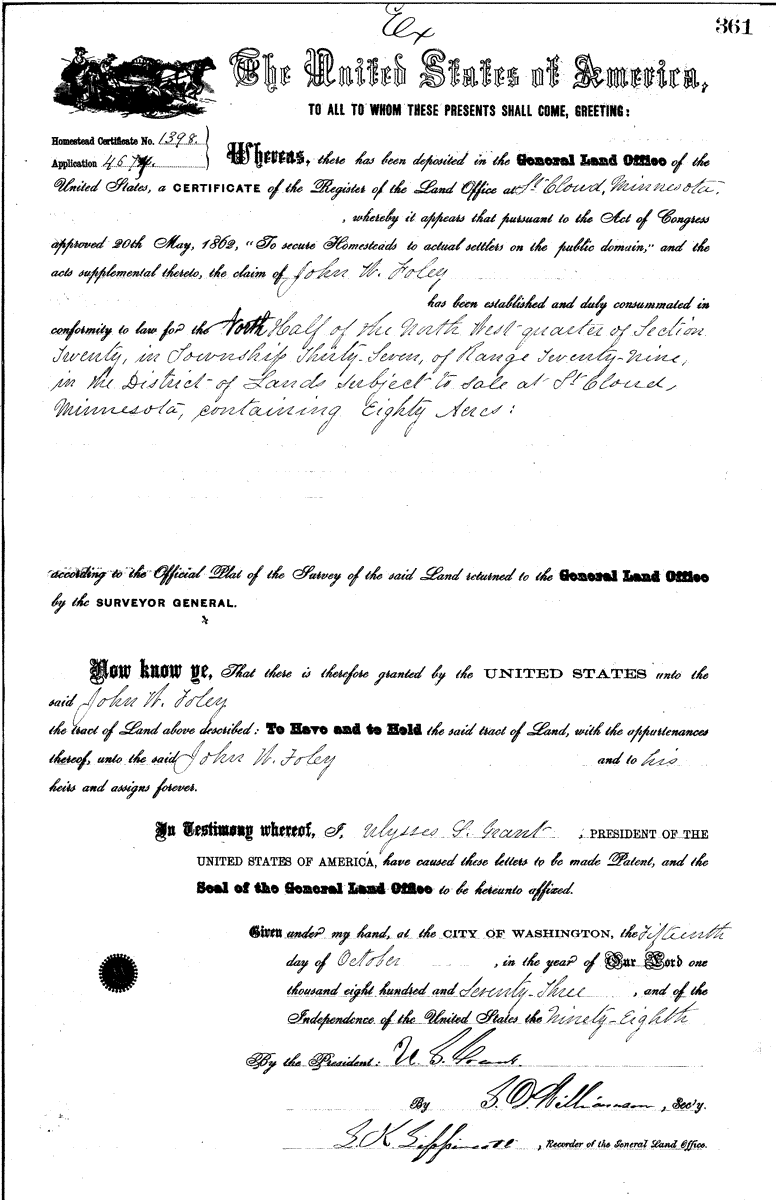 Ex
361
The United States of America,
TO ALL TO WHOM THESE PRESENTS SHALL COME, GREETING:
Homestead Certificate No. 1398.
Application 4674.
Whereas, there has been deposited in the General Land Office of the
United States, a CERTIFICATE of the Register of the Land Office at St Cloud, Minnesota.
, whereby it appears that pursuant to the Act of Congress
approved 20th May, 1862, "To secure Homesteads to actual settlers on the public domain," and the
acts supplemental thereto, the claim of John W. Foley
has been established and duly consummated in
conformity to law for the North Half of the North West quarter of Section
Twenty, in Township Thirty-Seven, of Range Twenty-nine,
in the District of Lands subject to sale at St Cloud,
Minnesota, containing Eighty Acres:
according to the Official Plat of the Survey of the said Land returned to the General Land Office
by the SURVEYOR GENERAL.
Now know ye, That there is therefore granted by the UNITED STATES unto the
said John W. Foley
the tract of Land above described: To Have and to Hold the said tract of Land, with the appurtenances
thereof, unto the said John W. Foley and to his
heirs and assigns forever.
In Testimony whereof, I, Ulysses S. Grant, PRESIDENT OF THE
UNITED STATES OF AMERICA, have caused these letters to be made Patent, and the
Seal of the General Land Office to be hereunto affixed.
Given under my hand, at the CITY OF WASHINGTON, the Fifteenth
day of October, in the year of Our Lord one
thousand eight hundred and Seventy-Three, and of the
Independence of the United States the Ninety-Eighth
By the President: U. S. Grant
By S. D. Williamson, Sec'y.
S K Lippincott, Recorder of the General Land Office.